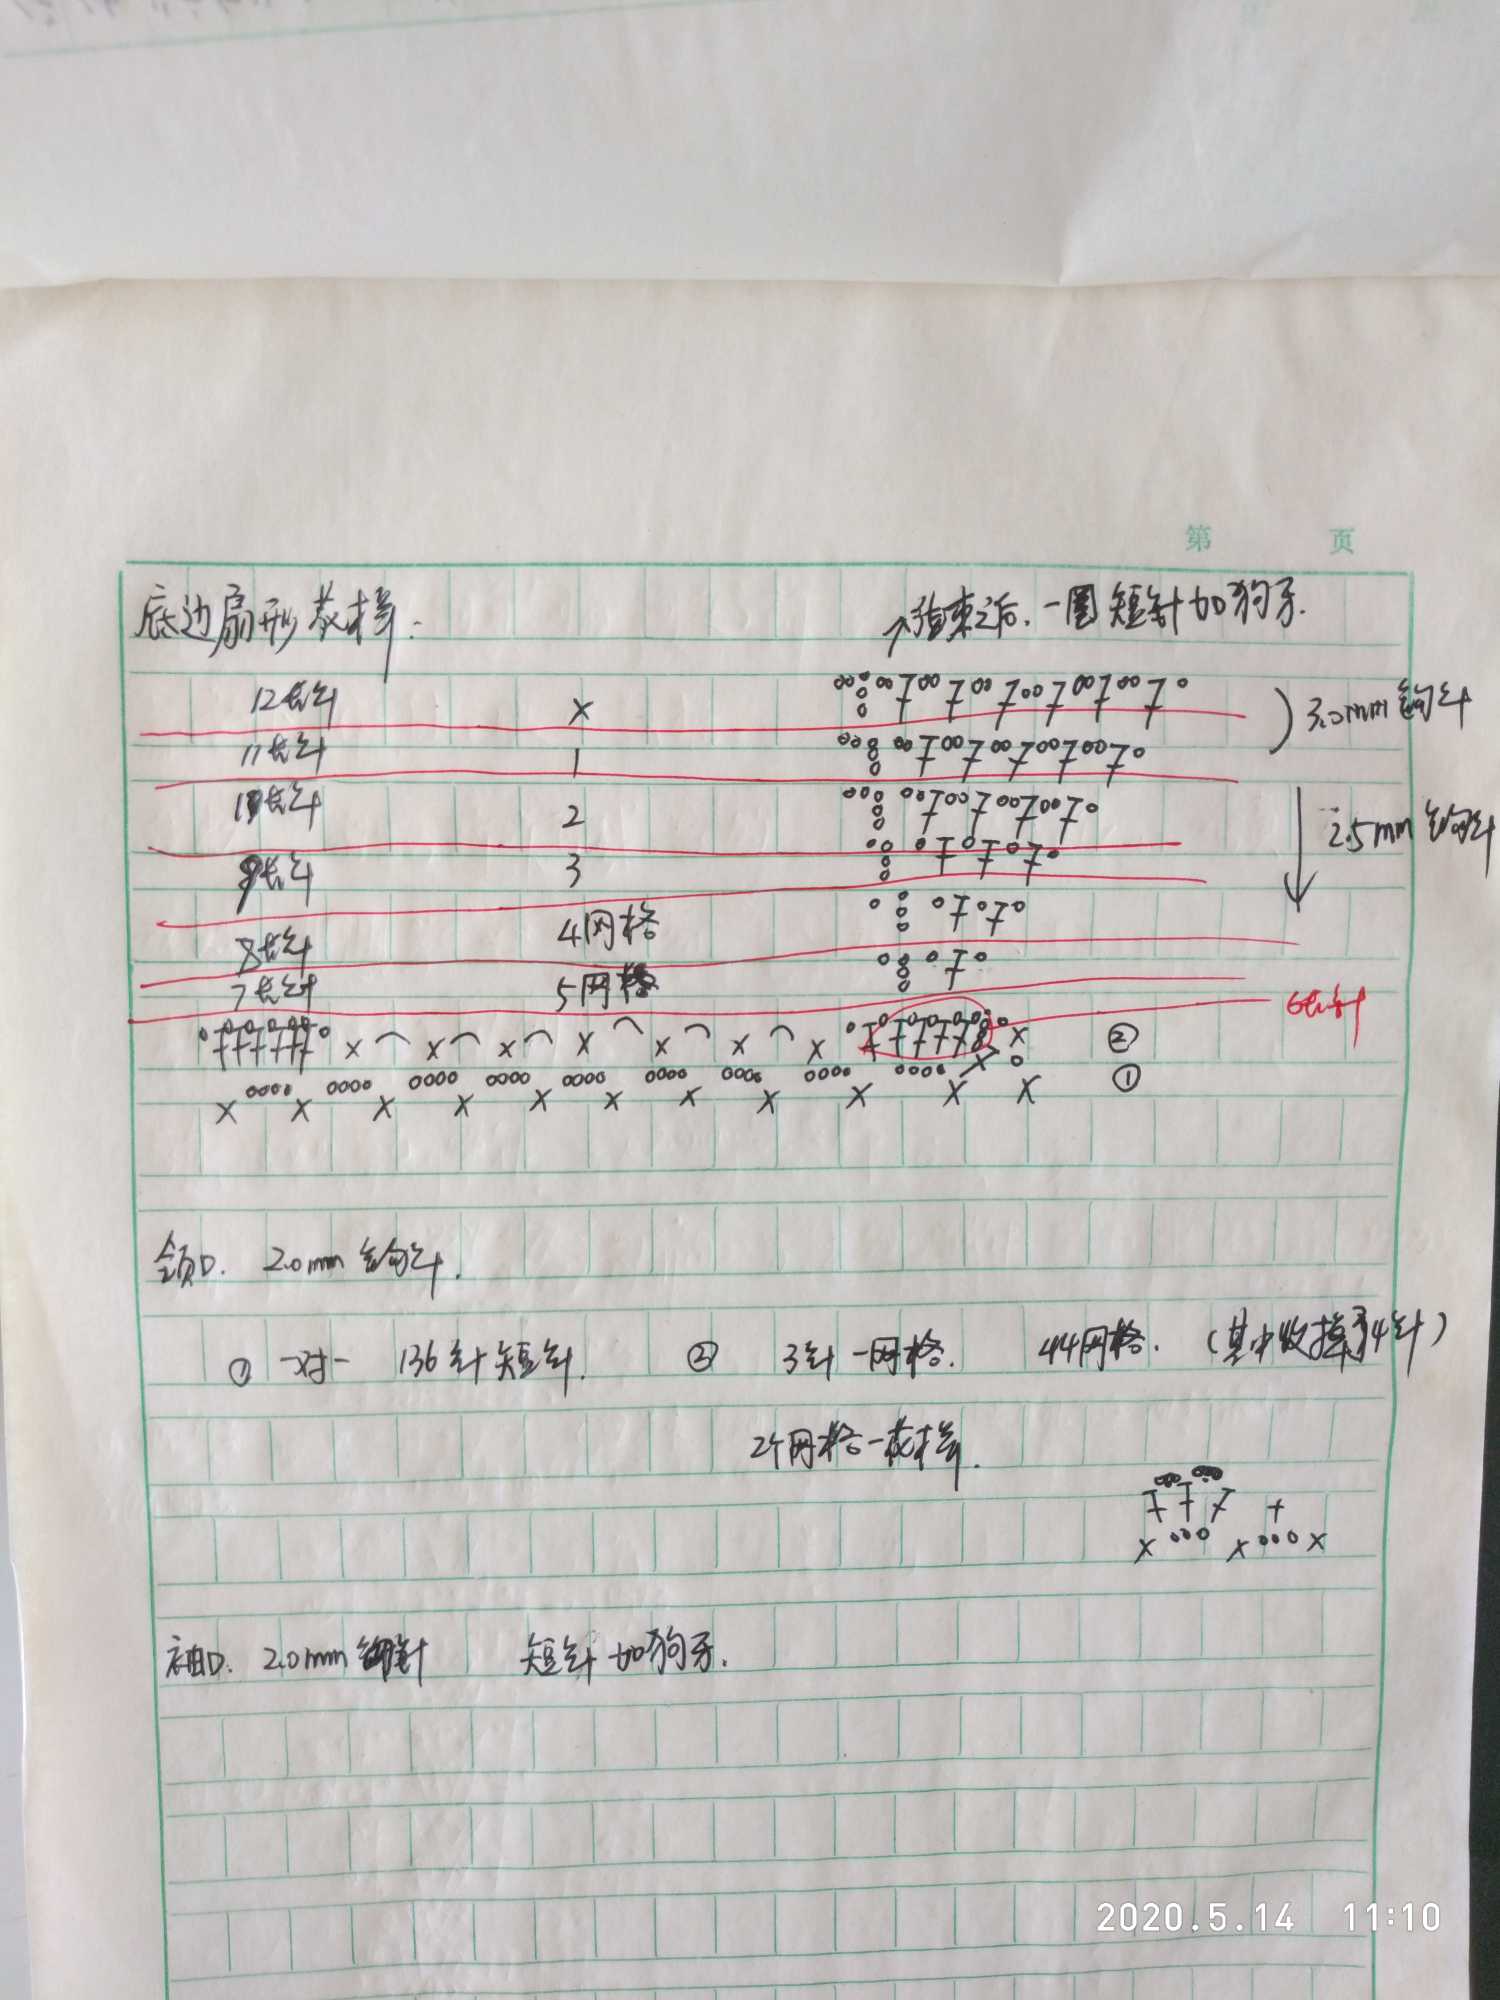 第 页
底边扇形花样.
结束之后.一圈短针加狗牙.
12长针 X 3.0mm钩针
11长针 1
10长针 2 2.5mm钩针
9长针 3
8长针 4网格
7长针 5网格
6长针
②
①
领口. 2.0mm钩针.
① 一对一 136针短针. ② 3针一网格. 44网格. (其中收掉了4针)
2个网格一花样.
袖口. 2.0mm钩针 短针加狗牙.
2020.5.14 11:10